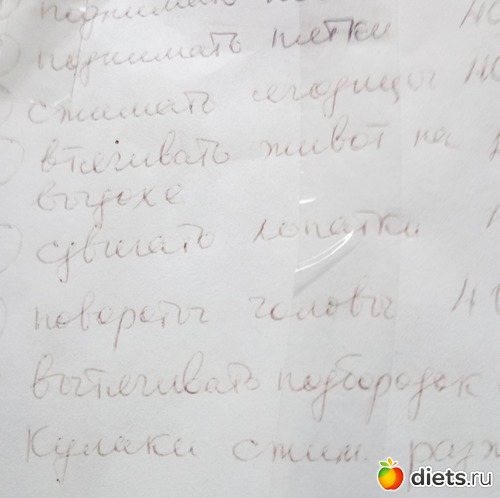 поднимать
поднимать пятки
сжимать ягодицы
втягивать живот на
выдохе
сдвигать лопатки
повороты головы
вытягивать подбородок
Кулаки сжим. разж
diets.ru